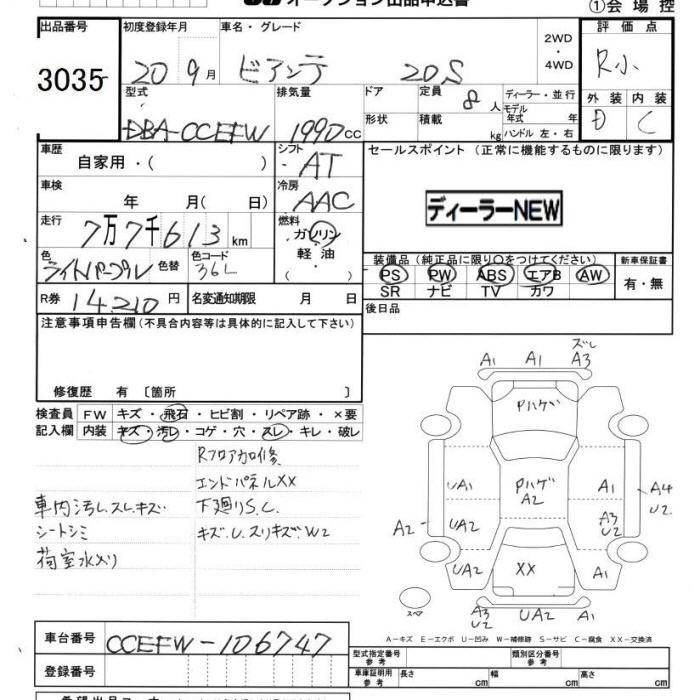 オークション出品申込書
①会場控
出品番号 3035
初度登録年月 20 9月
車名・グレード ビアンテ 20S
2WD・4WD
評価点 R小
型式 DBA-CCEFW
排気量 1990cc
ドア 形状
定員 8人
積載 kg
ディーラー・並行
モデル年式 年
ハンドル 左・右
外装 D 内装 C
車歴 自家用・( )
シフト AT
セールスポイント (正常に機能するものに限ります)
車検 年 月( 日)
冷房 AAC
ディーラーNEW
走行 7万7千613km
燃料 ガソリン 軽油 ・( )
色 ライトパープル 色替 色コード 36L
装備品(純正品に限り〇をつけてください)
PS PW ABS エアB AW
SR ナビ TV カワ
新車保証書 有・無
R券 14210円 名変通知期限 月 日
後日品
注意事項申告欄(不具合内容等は具体的に記入して下さい)
修復歴 有 〔箇所 〕
検査員 FW キズ・飛石・ヒビ割・リペア跡・×要
記入欄 内装 キズ・汚レ・コゲ・穴・スレ・キレ・破レ
Rフロア加修
エンドパネルXX
車内汚レ.スレ.キズ 下廻りS.C.
シートシミ キズ.U.スリキズ.W2
荷室水入り
ズレ
A1 A1 A3
Pハゲ
UA1 Pハゲ A2 A1 A4 U2
A2 UA2 A3 U2
UA2 XX A1
スペア A3 U2 UA2 A1
A-キズ E-エクボ U-凹み W-補修跡 S-サビ C-腐食 XX-交換済
車台番号 CCEFW-106747
登録番号
型式指定番号 参考 類別区分番号 参考
車庫証明用 参考 長さ cm 幅 cm 高さ cm